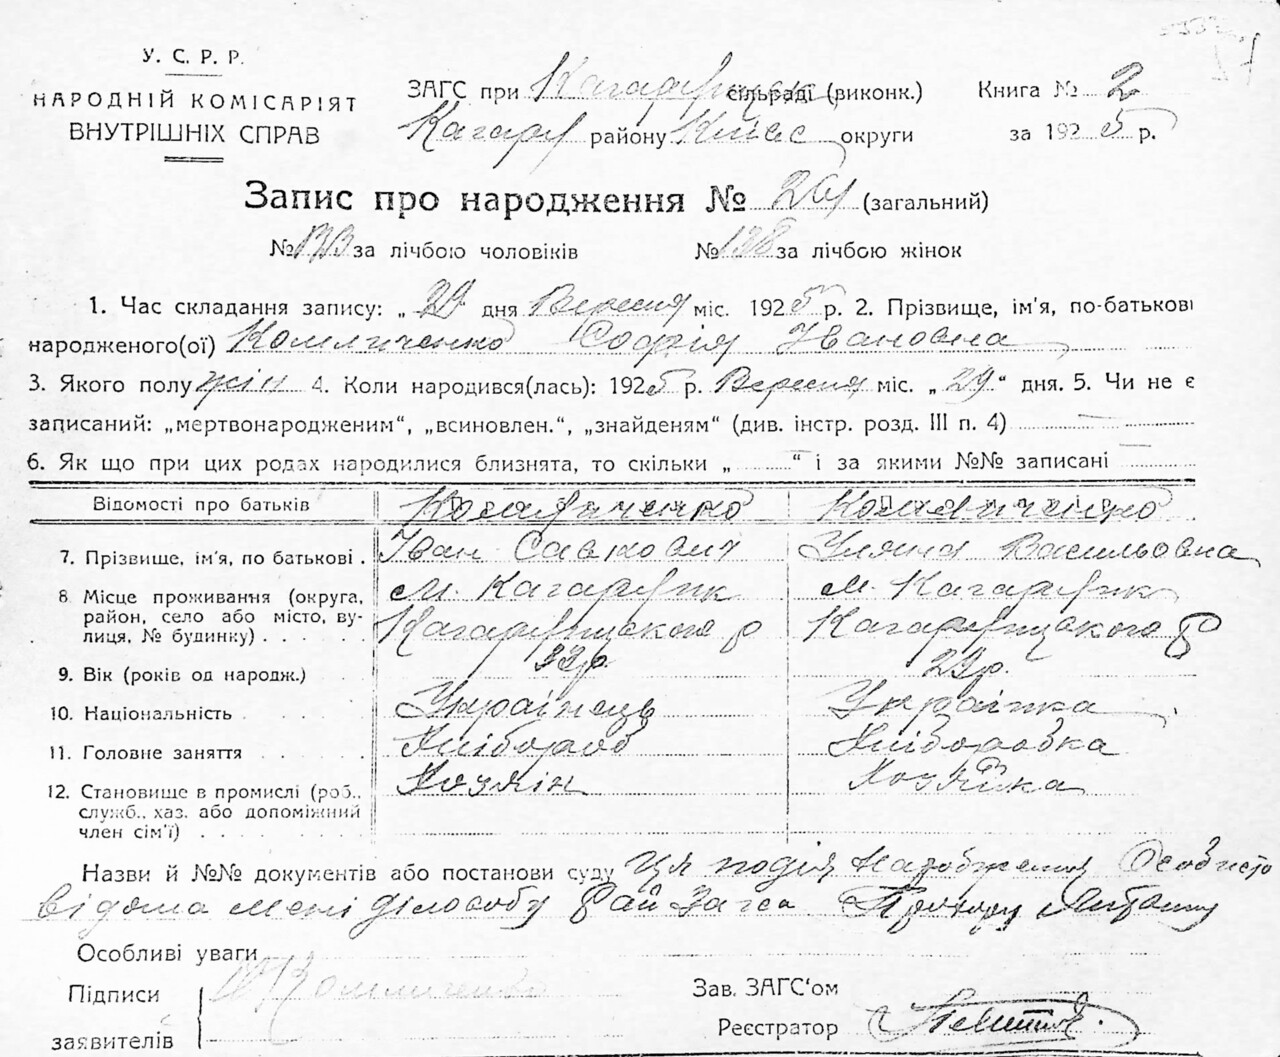 У. С. Р. Р.
НАРОДНІЙ КОМІСАРІЯТ
ВНУТРІШНІХ СПРАВ
ЗАГС при Кагарлицькій сільраді (виконк.) Книга № 2
Кагарл району Київс округи за 1925 р.
Запис про народження № (загальний)
№ за лічбою чоловіків № 128 за лічбою жінок
1. Час складання запису: „ 29 дня Вересня міс. 1925 р. 2. Прізвище, ім'я, по-батькові
народженого(ої) Комличенко Софія Івановна
3. Якого полу жін 4. Коли народився(лась): 1925 р. Вересня міс. „ 29 “ дня. 5. Чи не є
записаний: „мертвонародженим“, „всиновлен.“, „знайденям“ (див. інстр. розд. III п. 4)
6. Як що при цих родах народилися близнята, то скільки „ “ і за якими №№ записані
Відомості про батьків
7. Прізвище, ім'я, по батькові . Іван Савкович Уляна Васильовна
8 Місце проживання (округа, м. Кагарлик м. Кагарлик
район, село або місто, ву- Кагарлицького р Кагарлицького р
лиця, № будинку) . . . . .
9. Вік (років од народж.) 33 р. 29 р.
10. Національність Українець Українка
11. Головне заняття Хлібороб Хлiборобка
12. Становище в промислі (роб., Хозяін Хозяйка
служб., хаз. або допоміжний
член сім'ї)
Назви й №№ документів або постанови суду Ця подія Народження Особисто
відома мені діловоду Рай Загса
Особливі уваги
Підписи Комличенко
заявителів
Зав. ЗАГС'ом
Реєстратор